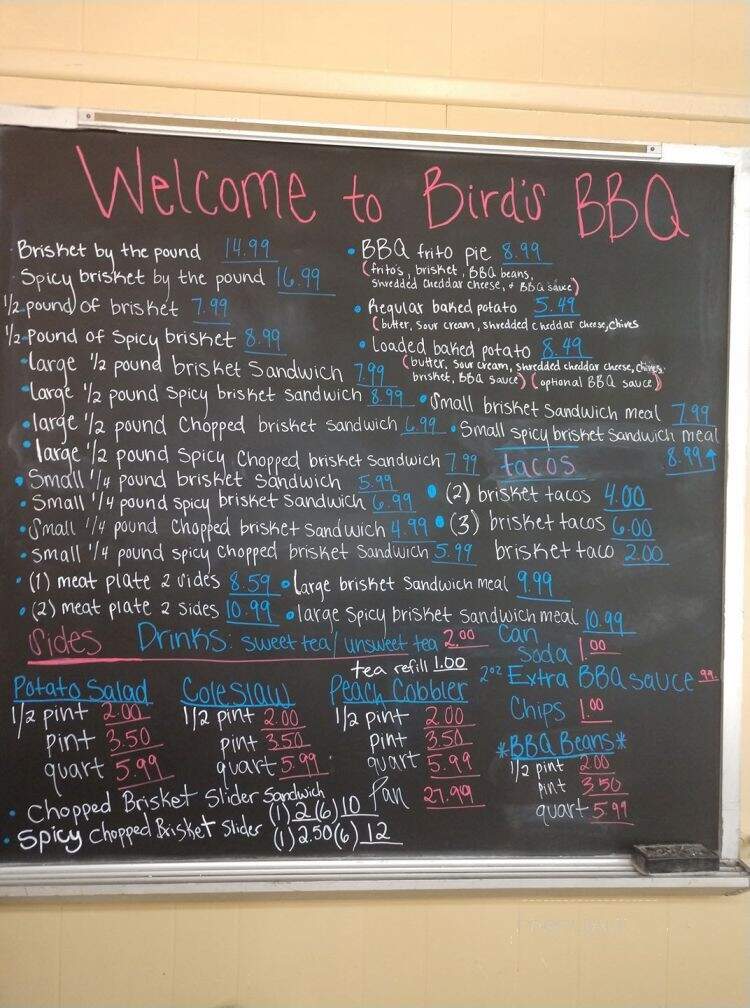 Welcome to Bird's BBQ
Brisket by the pound 14.99
Spicy brisket by the pound 16.99
1/2 pound of brisket 7.99
1/2 pound of spicy brisket 8.99
large 1/2 pound brisket Sandwich 7.99
large 1/2 pound Spicy brisket sandwich 8.99
large 1/2 pound Chopped brisket sandwich 6.99
large 1/2 pound Spicy Chopped brisket sandwich 7.99
Small 1/4 pound brisket Sandwich 5.99
Small 1/4 pound spicy brisket Sandwich 6.99
Small 1/4 pound Chopped brisket Sandwich 4.99
small 1/4 pound spicy Chopped brisket Sandwich 5.99
(1) meat plate 2 sides 8.59
(2) meat plate 2 sides 10.99
BBQ frito pie 8.99
(frito's, brisket, BBQ beans,
Shredded Cheddar cheese, + BBQ sauce)
Regular baked potato 5.49
(butter, Sour cream, shredded cheddar cheese, chives
loaded baked potato 8.49
(butter, Sour cream, shredded cheddar cheese, chives
brisket, BBQ sauce) (optional BBQ sauce)
Small brisket Sandwich meal 7.99
Small spicy brisket Sandwich meal
8.99
tacos
(2) brisket tacos 4.00
(3) brisket tacos 6.00
brisket taco 2.00
Large brisket Sandwich meal 9.99
large Spicy brisket Sandwich meal 10.99
Sides
Drinks: sweet tea/unsweet tea 2.00
tea refill 1.00
Can
Soda 1.00
2oz Extra BBQ sauce .99
Chips 1.00
Potato Salad
1/2 pint 2.00
pint 3.50
quart 5.99
Coleslaw
1/2 pint 2.00
pint 3.50
quart 5.99
Peach Cobbler
1/2 pint 2.00
pint 3.50
quart 5.99
Pan 27.99
*BBQ Beans*
1/2 pint 2.00
pint 3.50
quart 5.99
Chopped Brisket Slider Sandwich
(1) 2 (6) 10
Spicy Chopped Brisket Slider (1) 2.50 (6) 12